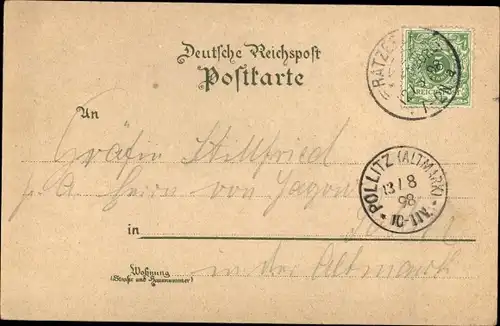 Deutsche Reichspost
Postkarte
RATZEB
5
REICHSPOST
An
Gräfin Stillfried
p. A. Herrn von Jagow
POLLITZ (ALTMARK)
13/8
98
10-11V.
in
in der Altmark
Wohnung
(Straße und Hausnummer)